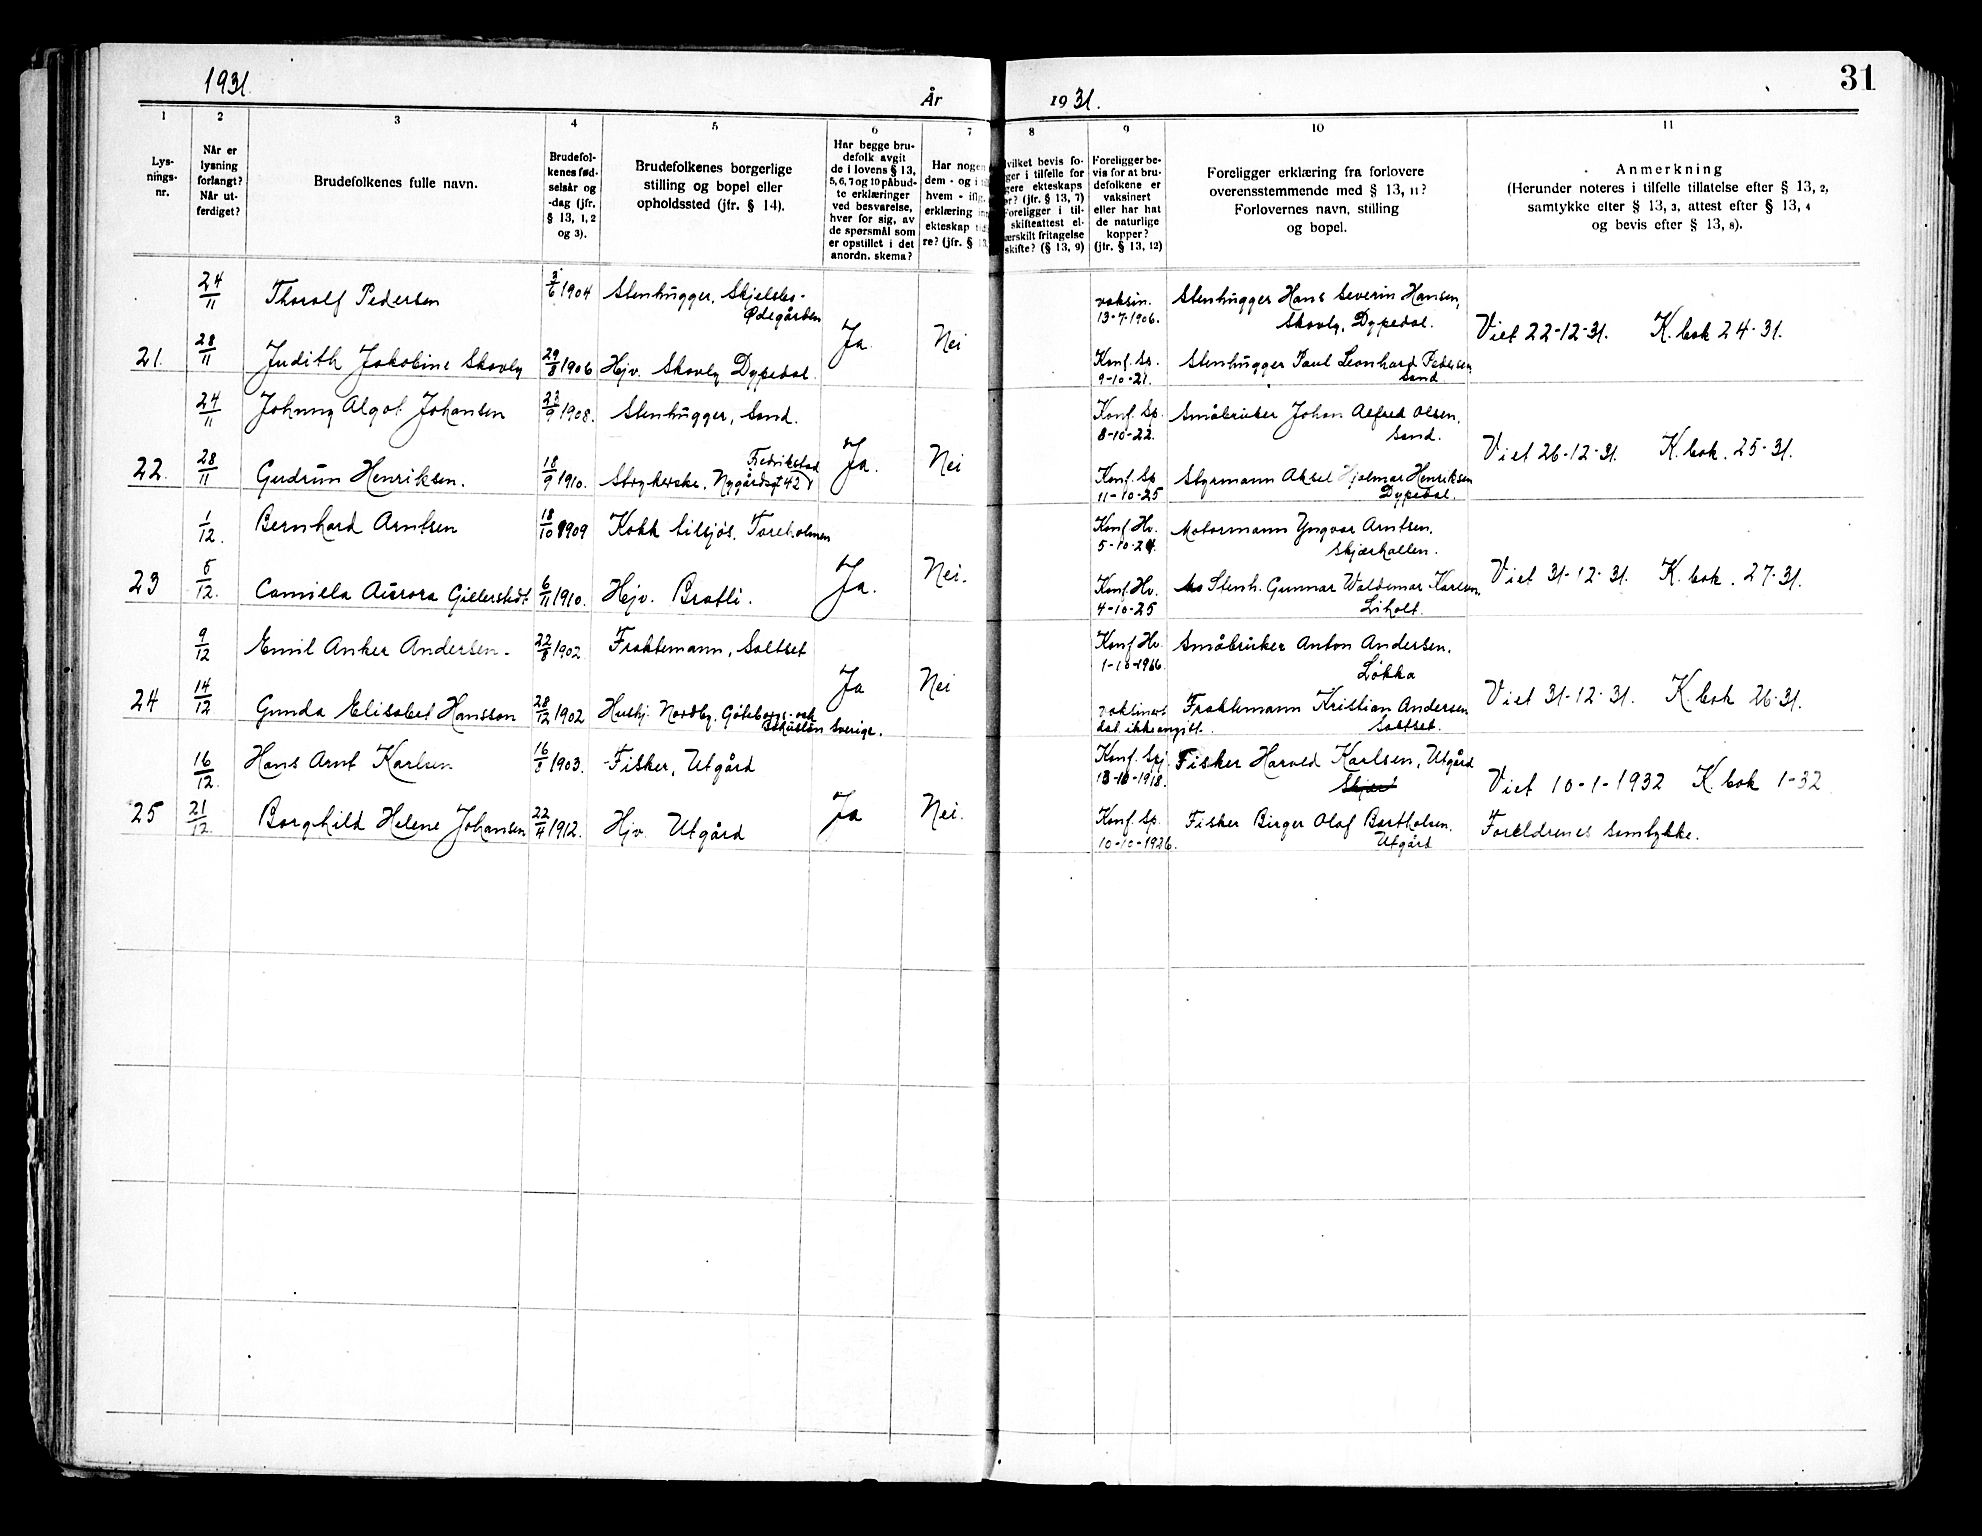 1931.
År
1931.
31
1
2
3
4
5
6
7
8
9
10
11
Lys-
nings-
nr.
Når er
lysning
forlangt?
Når ut-
ferdiget?
Brudefolkenes fulle navn.
Brudefol-
kenes fød-
selsår og
-dag (jfr.
§ 13, 1, 2
og 3).
Brudefolkenes borgerlige
stilling og bopel eller
opholdssted (jfr. § 14).
Har begge bru-
defolk avgit
de i lovens § 13,
5, 6, 7 og 10 påbud-
te erklæringer
ved besvarelse,
hver for sig, av
de spørsmål som
er opstillet i det
anordn. skema?
Har nogen
dem - og i
hvem - ifig.
erklæring in
ekteskap tid
re? (jfr. § 13,
vilket bevis fo-
ger i tilfelle for
gere ekteskaps
er? (jfr. § 13, 7)
Foreligger i til-
skifteattest el-
ærskilt fritagelse
skifte? (§ 13, 9)
Foreligger be-
vis for at bru-
defolkene er
vaksinert
eller har hat
de naturlige
kopper?
(jfr. § 13, 12)
Foreligger erklæring fra forlovere
overensstemmende med § 13, 11?
Forlovernes navn, stilling
og bopel.
Anmerkning
(Herunder noteres i tilfelle tillatelse efter § 13, 2,
samtykke efter § 13, 3, attest efter § 13, 4
og bevis efter § 13, 8).
24/11 Thorolf Pedersen 3/6 1904 Stenhugger, Skjelsbo-
Ødegården
vaksin.
13-7-1906.
Stenhugger Hans Severin Hansen,
Skovly, Dypedal.
21. 28/11 Judith Jakobine Skovly 29/8 1906 Hjv. Skovly Dypedal. Ja. Nei
Konf. Sp.
9-10-21.
Stenhugger Paul Leonhard Pedersen
Sand.
Viet 22-12-31. K. bok 24-31.
24/11 Johnny Algot Johansen 23/9 1908. Stenhugger, Sand.
Konf. Sp.
8-10-22.
Småbruker Johan Alfred Olsen,
Sand.
22. 28/11 Gudrun Henriksen. 18/9 1910. Strykerske, Nygårdsgt 42
Fredrikstad
Ja. Nei
Konf. Sp
11-10-25
Styrmann Aksel Hjalmar Henriksen
Dypedal.
Viet 26-12-31 K. bok. 25-31.
1/12. Bernhard Arntsen 18/10 1909 Kokk tilsjøs. Tareholmen
Konf. Hv.
5-10-24.
Motormann Yngvar Arntsen.
Skjærhallen.
23 5/12. Camilla Aurora Gillerstedt 6/11 1910. Hjv. Bratli. Ja. Nei.
Konf. Hv.
4-10-25
Stenh. Gunnar Waldemar Karlsen,
Liholt.
Viet 31-12-31. K. bok. 27-31.
9/12 Emil Anker Andersen. 22/8 1902 Fraktemann, Saltset
Konf. Hv.
Småbruker Anton Andersen.
Løkka
24 14/12 Gunda Elisabet Hansson 28/12 1902 Hushj. Nordby. Göteborgs- och
Bohuslän Sverige.
Ja Nei
vaksinert
dat. ikke angitt.
Fraktemann Kristian Andersen
Saltset.
Viet 31-12-31. K. bok 26-31.
16/12. Hans Arnt Karlsen 16/8 1903. Fisker, Utgård
Konf. Spj
13-10-1918.
Fisker Harald Karlsen, Utgård
Skjær
25 21/12. Borghild Helene Johansen 22/4 1912. Hjv. Utgård Ja Nei.
Konf. Sp.
10-10-1926.
Fisker Birger Olaf Bertholsen.
Utgård
Viet 10-1-1932 K. bok 1-32
Foreldrenes samtykke.